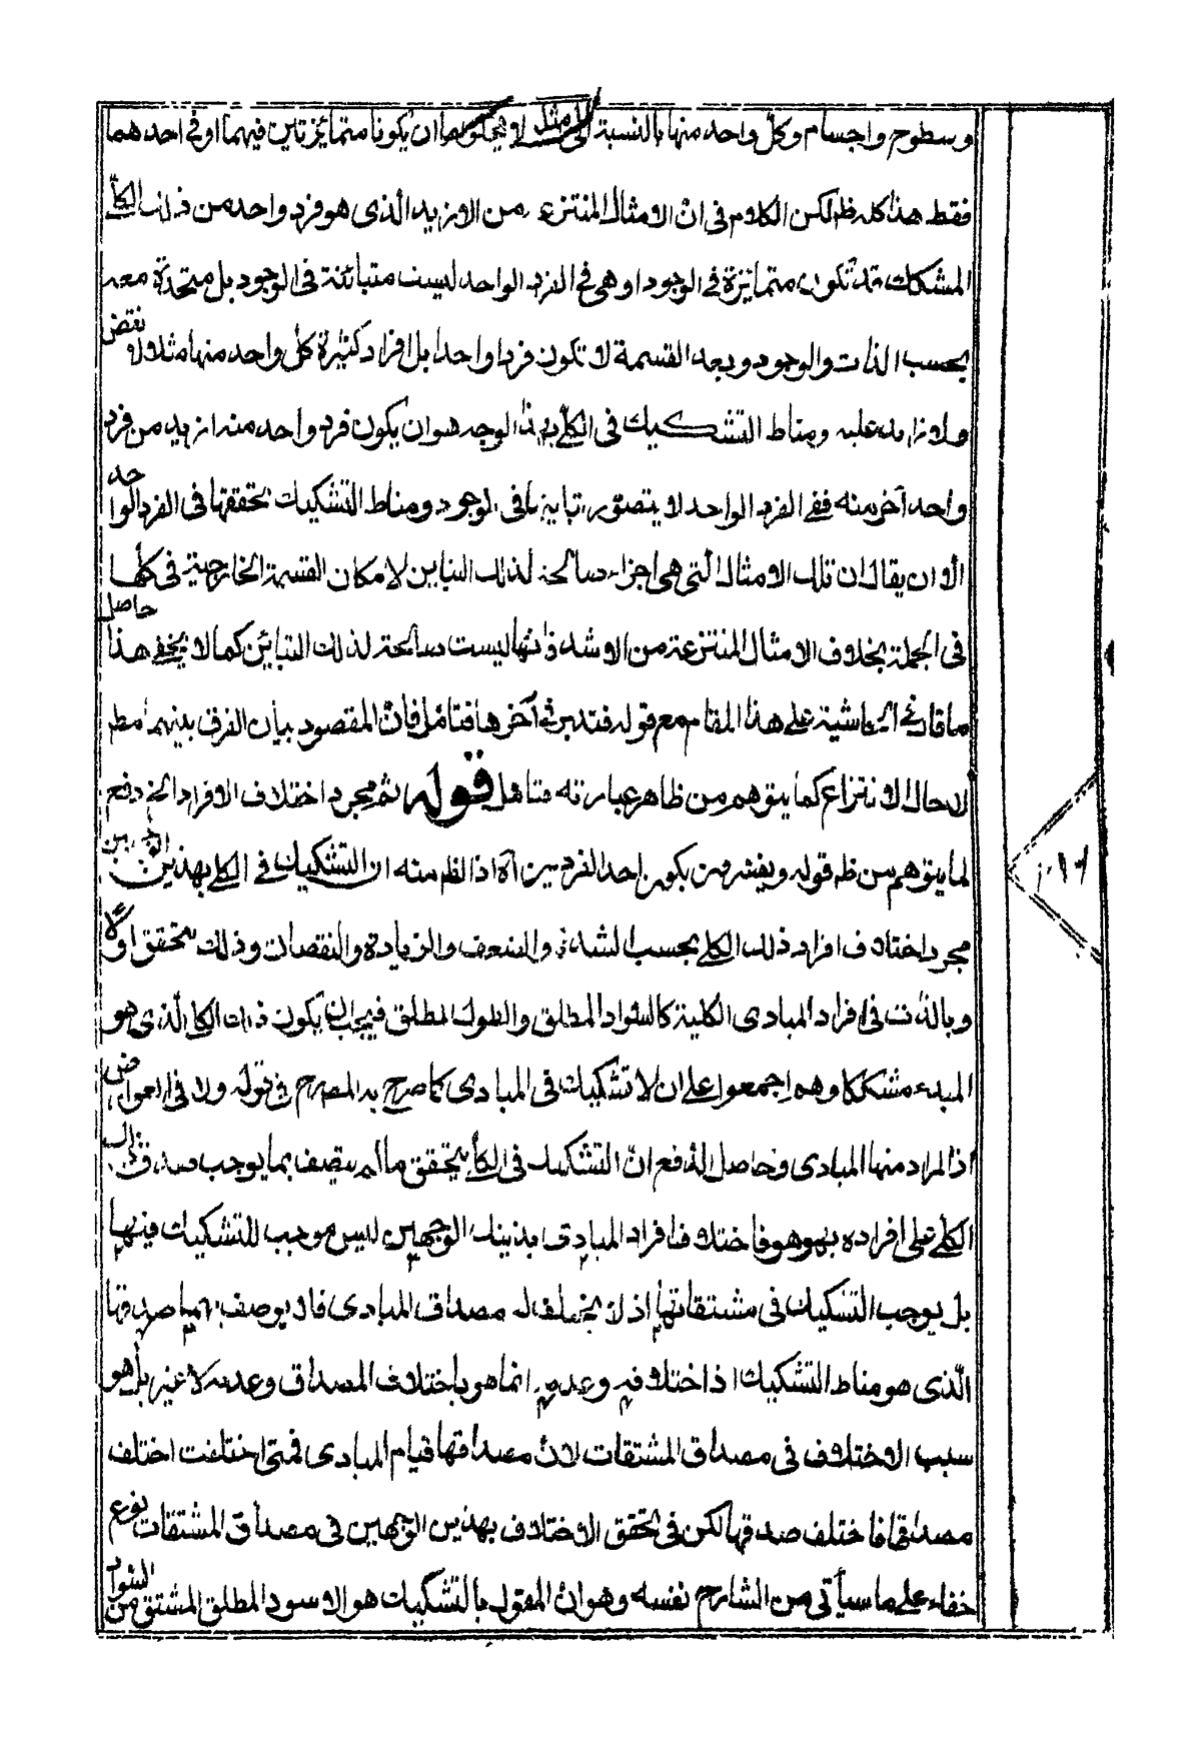 وسطوح واجسام وكل واحد منها بالنسبة الى مثل ان يكونا متمايزتين فيهما او فى احدهما
فقط هذا كله ظ لكن الكلام فى ان الامثال المنتزعة من الازيد الذى هو فرد واحد من ذلك الكلى
المشكك قد تكون متمايزة فى الوجود او هى فى الفرد الواحد ليست متبائنة فى الوجود بل متحدة معه
بحسب الذات والوجود وبعد القسمة لا تكون فردا واحدا بل افراد كثيرة كل واحد منها مثلا لا نقض
ولا زايد عليه ومناط التشكيك فى الكلى بهذا الوجه هو ان يكون فرد واحد منه ازيد من فرد
واحد آخر منه ففى الفرد الواحد لا يتصور تباينها فى الوجود ومناط التشكيك تحققها فى الفرد الواحد
الا ان يقال ان تلك الامثال التى هى اجزاء صالحة لذلك التباين لامكان القسمة الخارجية فى كلها
فى الجملة بخلاف الامثال المنتزعة من الاشد فانها ليست صالحة لذلك التبائن كما لا يخفى هذا حاصل
ما قال فى الحاشية على هذا المقام مع قوله فتدبر فى آخرها فتامل فان المقصود بيان الفرق بينهما مط
لا حال الانتزاع كما يتوهم من ظاهر عبارته فتاهل قوله ثم مجرد اختلاف الافراد الخ دفع
لما يتوهم من ظ قوله ويفسرون بكون احد الفردين آه اذ الظ منه ان التشكيك فى الكلى بهذين الوجهين
مجرد اختلاف افراد ذلك الكلى بحسب الشدة والضعف والزيادة والنقصان وذلك يتحقق اولا
وبالذات فى افراد المبادى الكلية كالسواد المطلق والطول المطلق فيجب ان يكون ذلك الكلى الذى هو
المبدء مشككا وهم اجمعوا على ان لا تشكيك فى المبادى كما صرح به المصرح فى قوله ولا فى العوارض
اذ المراد منها المبادى وحاصل الدفع ان التشكيك فى الكلى يتحقق ما لم يتصف بما يوجب صدق ذلك
الكلى على افراده بهو هو فاختلاف افراد المبادى بذينك الوجهين ليس موجب للتشكيك فيها
بل يوجب التشكيك فى مشتقاتها اذ لا يختلف له مصداق المبادى فلا يوصف بهما صدقها
الذى هو مناط التشكيك اذ اختلافه وعدمه انما هو باختلاف المصداق وعدمه لا غير بل هو
سبب الاختلاف فى مصداق المشتقات لان مصداقها قيام المبادى فمتى اختلفت اختلف
مصداقها فاختلف صدقها لكن فى تحقق الاختلاف بهذين الوجهين فى مصداق المشتقات نوع
خفاء على ما سيأتى من الشارح نفسه وهو ان المقول بالتشكيك هو الاسود المطلق المشتق من السواد